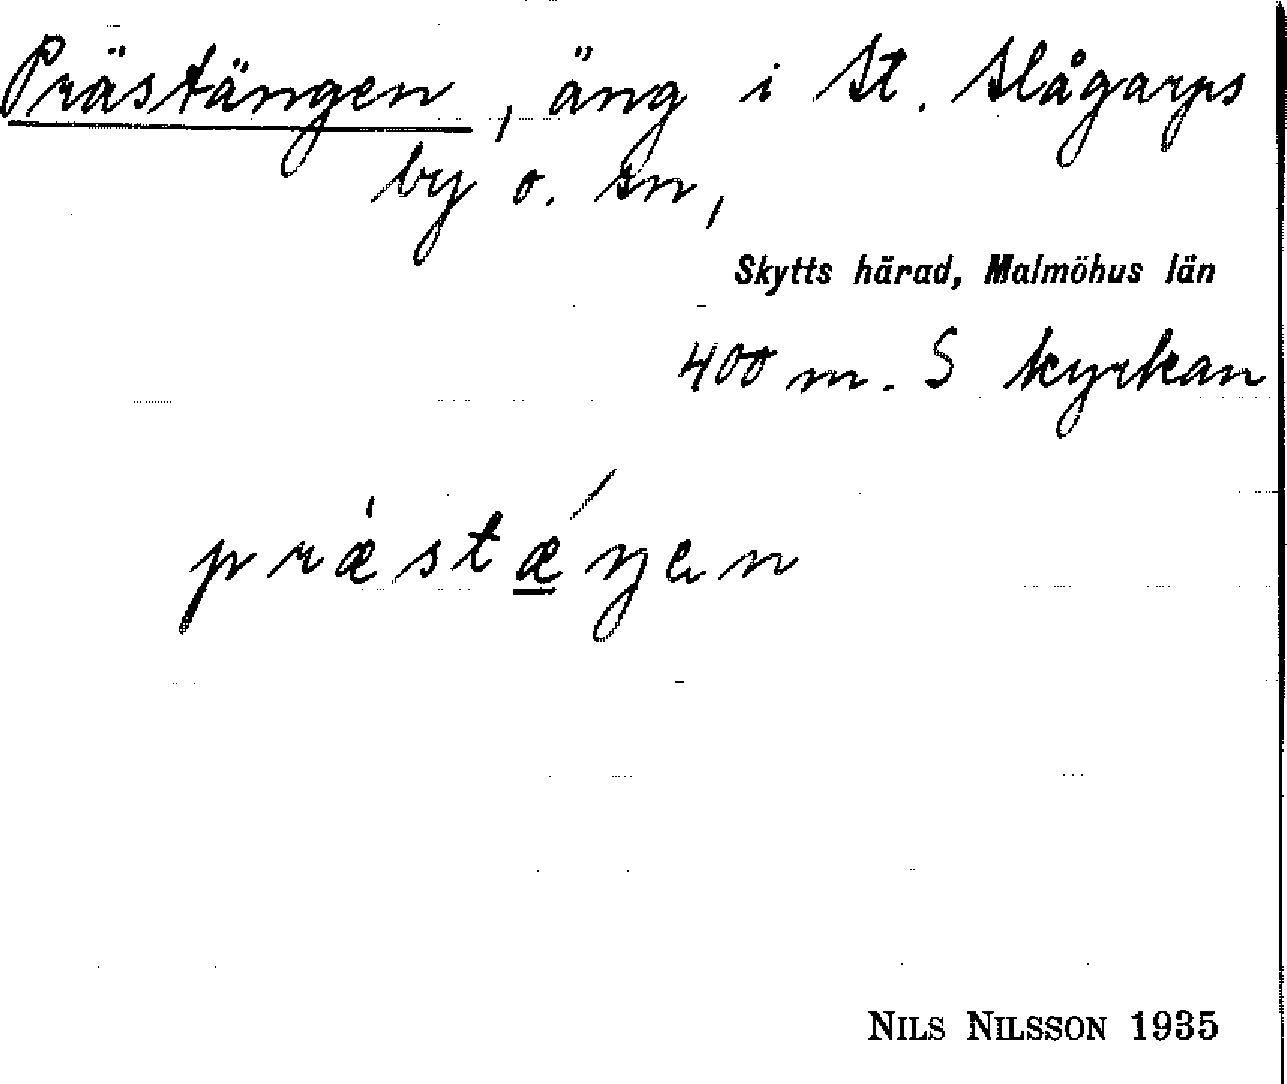 Prästängen, äng i St. Slågarps
by o. sn,
Skytts härad, Malmöhus län
400 m. S kyrkan
præ̍stǽ̲ŋen
NILS NILSSON 1935